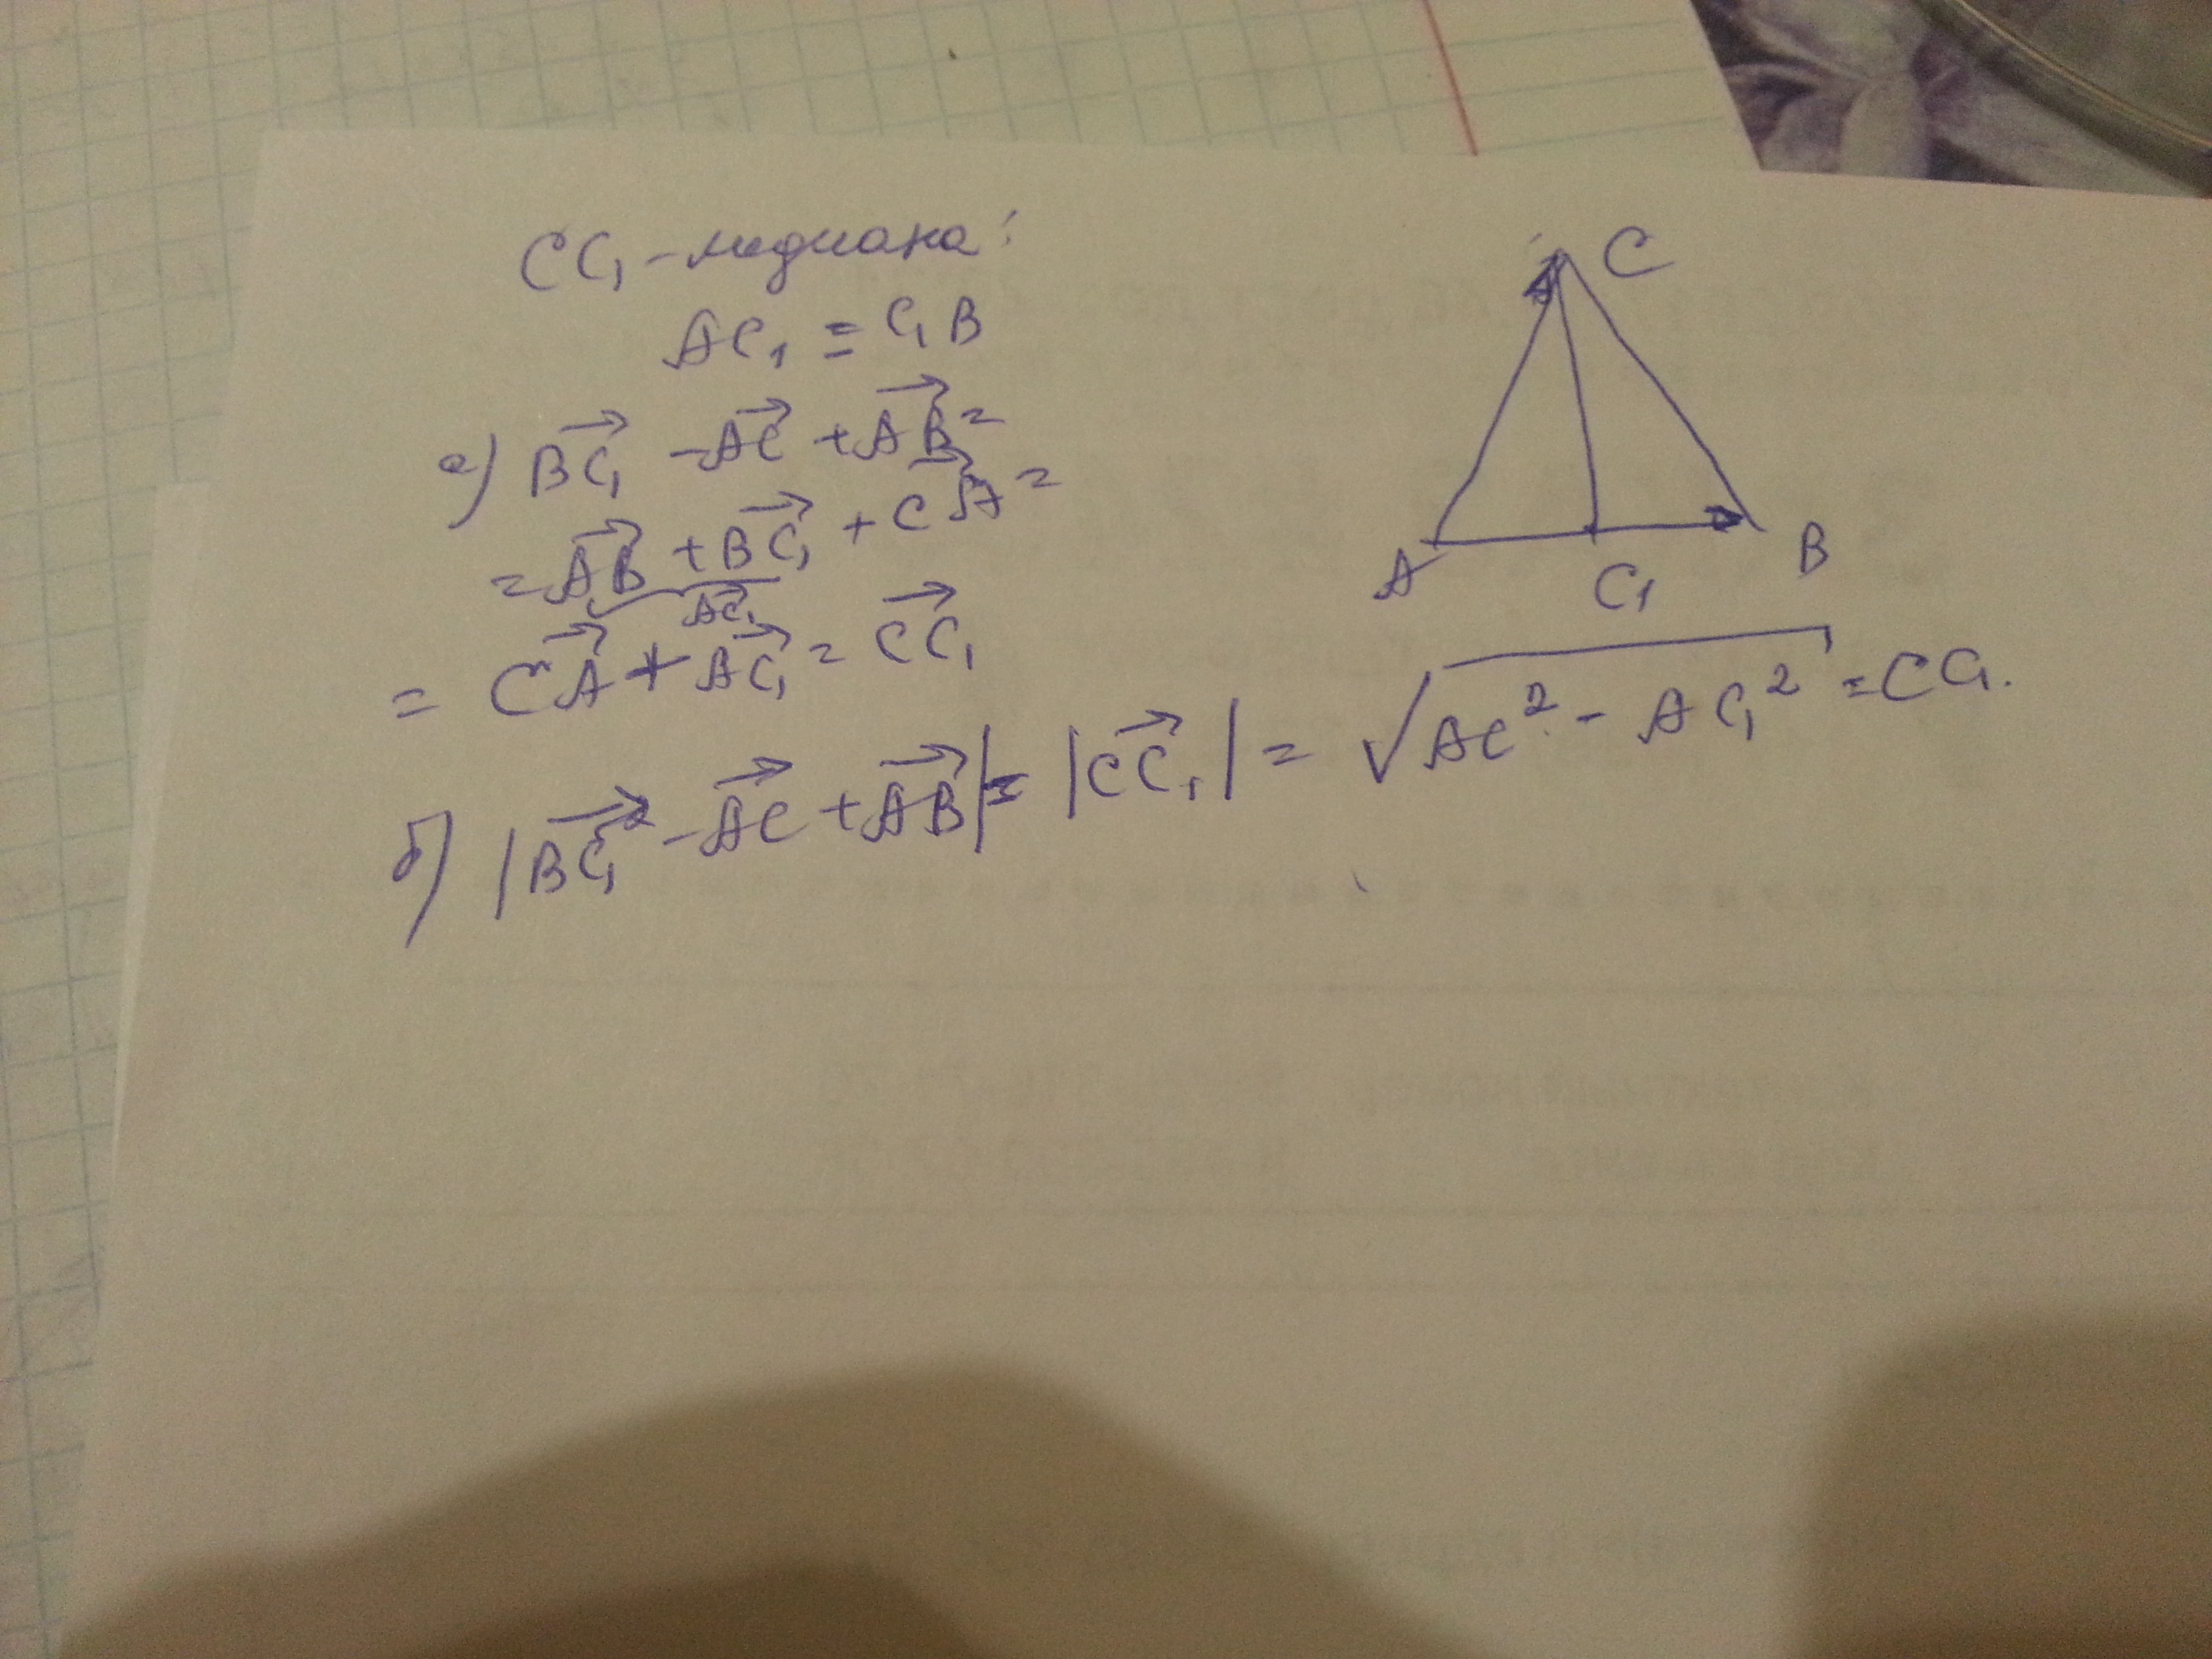 CC₁ - медиана:
AC₁ = C₁B
а) \overrightarrow{BC₁} - \overrightarrow{AC} + \overrightarrow{AB} =
= \overrightarrow{AB} + \overrightarrow{BC₁} + \overrightarrow{CA} =
\overrightarrow{AC₁}
= \overrightarrow{CA} + \overrightarrow{AC₁} = \overrightarrow{CC₁}
б) |\overrightarrow{BC₁} - \overrightarrow{AC} + \overrightarrow{AB}| = |\overrightarrow{CC₁}| = √(AC² - AC₁²) = CC₁.
C
A
C₁
B